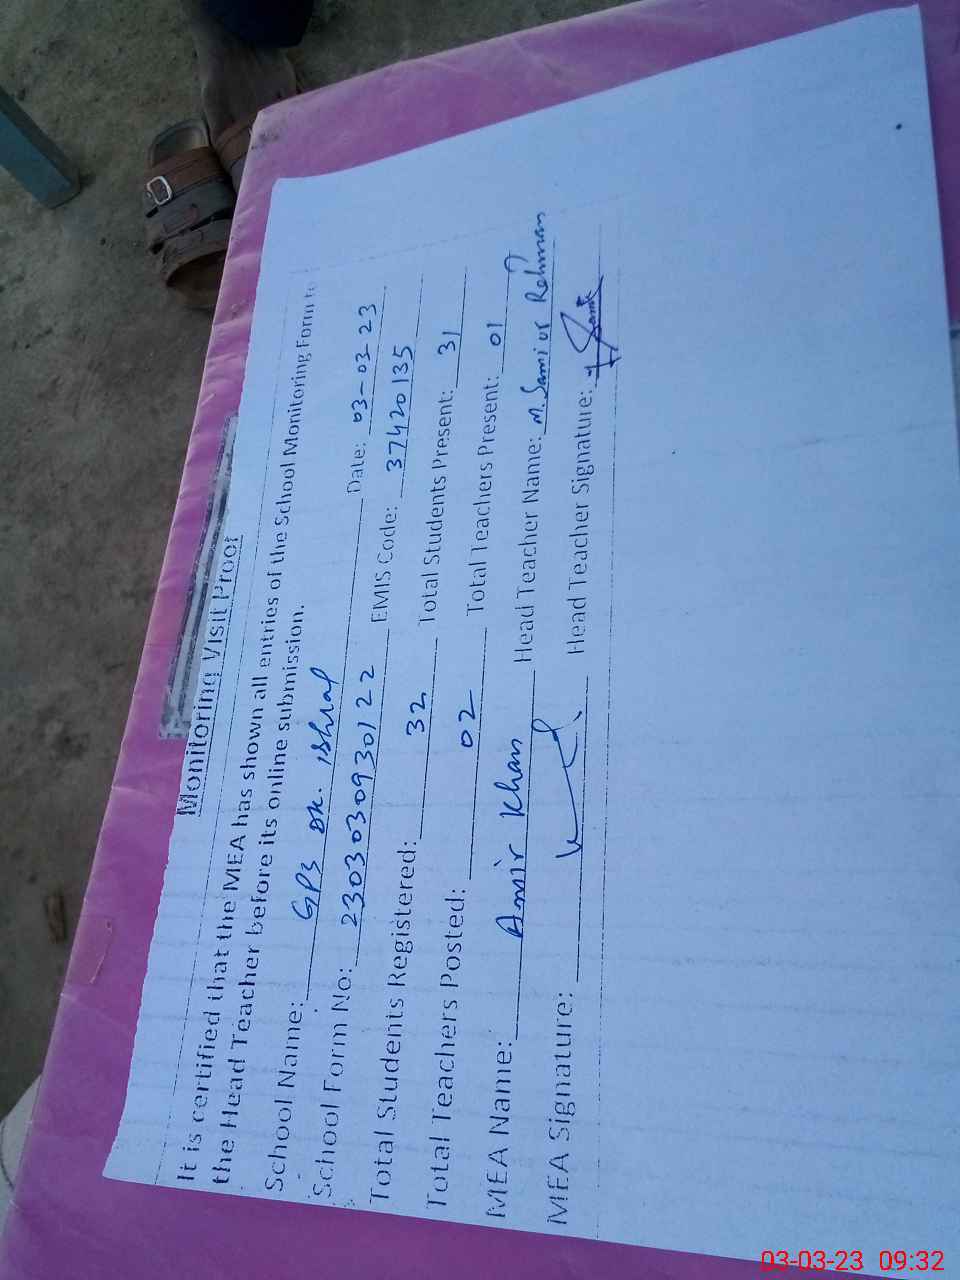 Monitoring Visit Proof
It is certified that the MEA has shown all entries of the School Monitoring Form to
the Head Teacher before its online submission.
School Name: GPS DK. Ishraf Date: 03-03-23
School Form No: 2303030930122 EMIS Code: 37420135
Total Students Registered: 32 Total Students Present: 31
Total Teachers Posted: 02 Total Teachers Present: 01
MEA Name: Amir Khan Head Teacher Name: M. Sami ur Rehman
MEA Signature: Head Teacher Signature: Sami
03-03-23 09:32